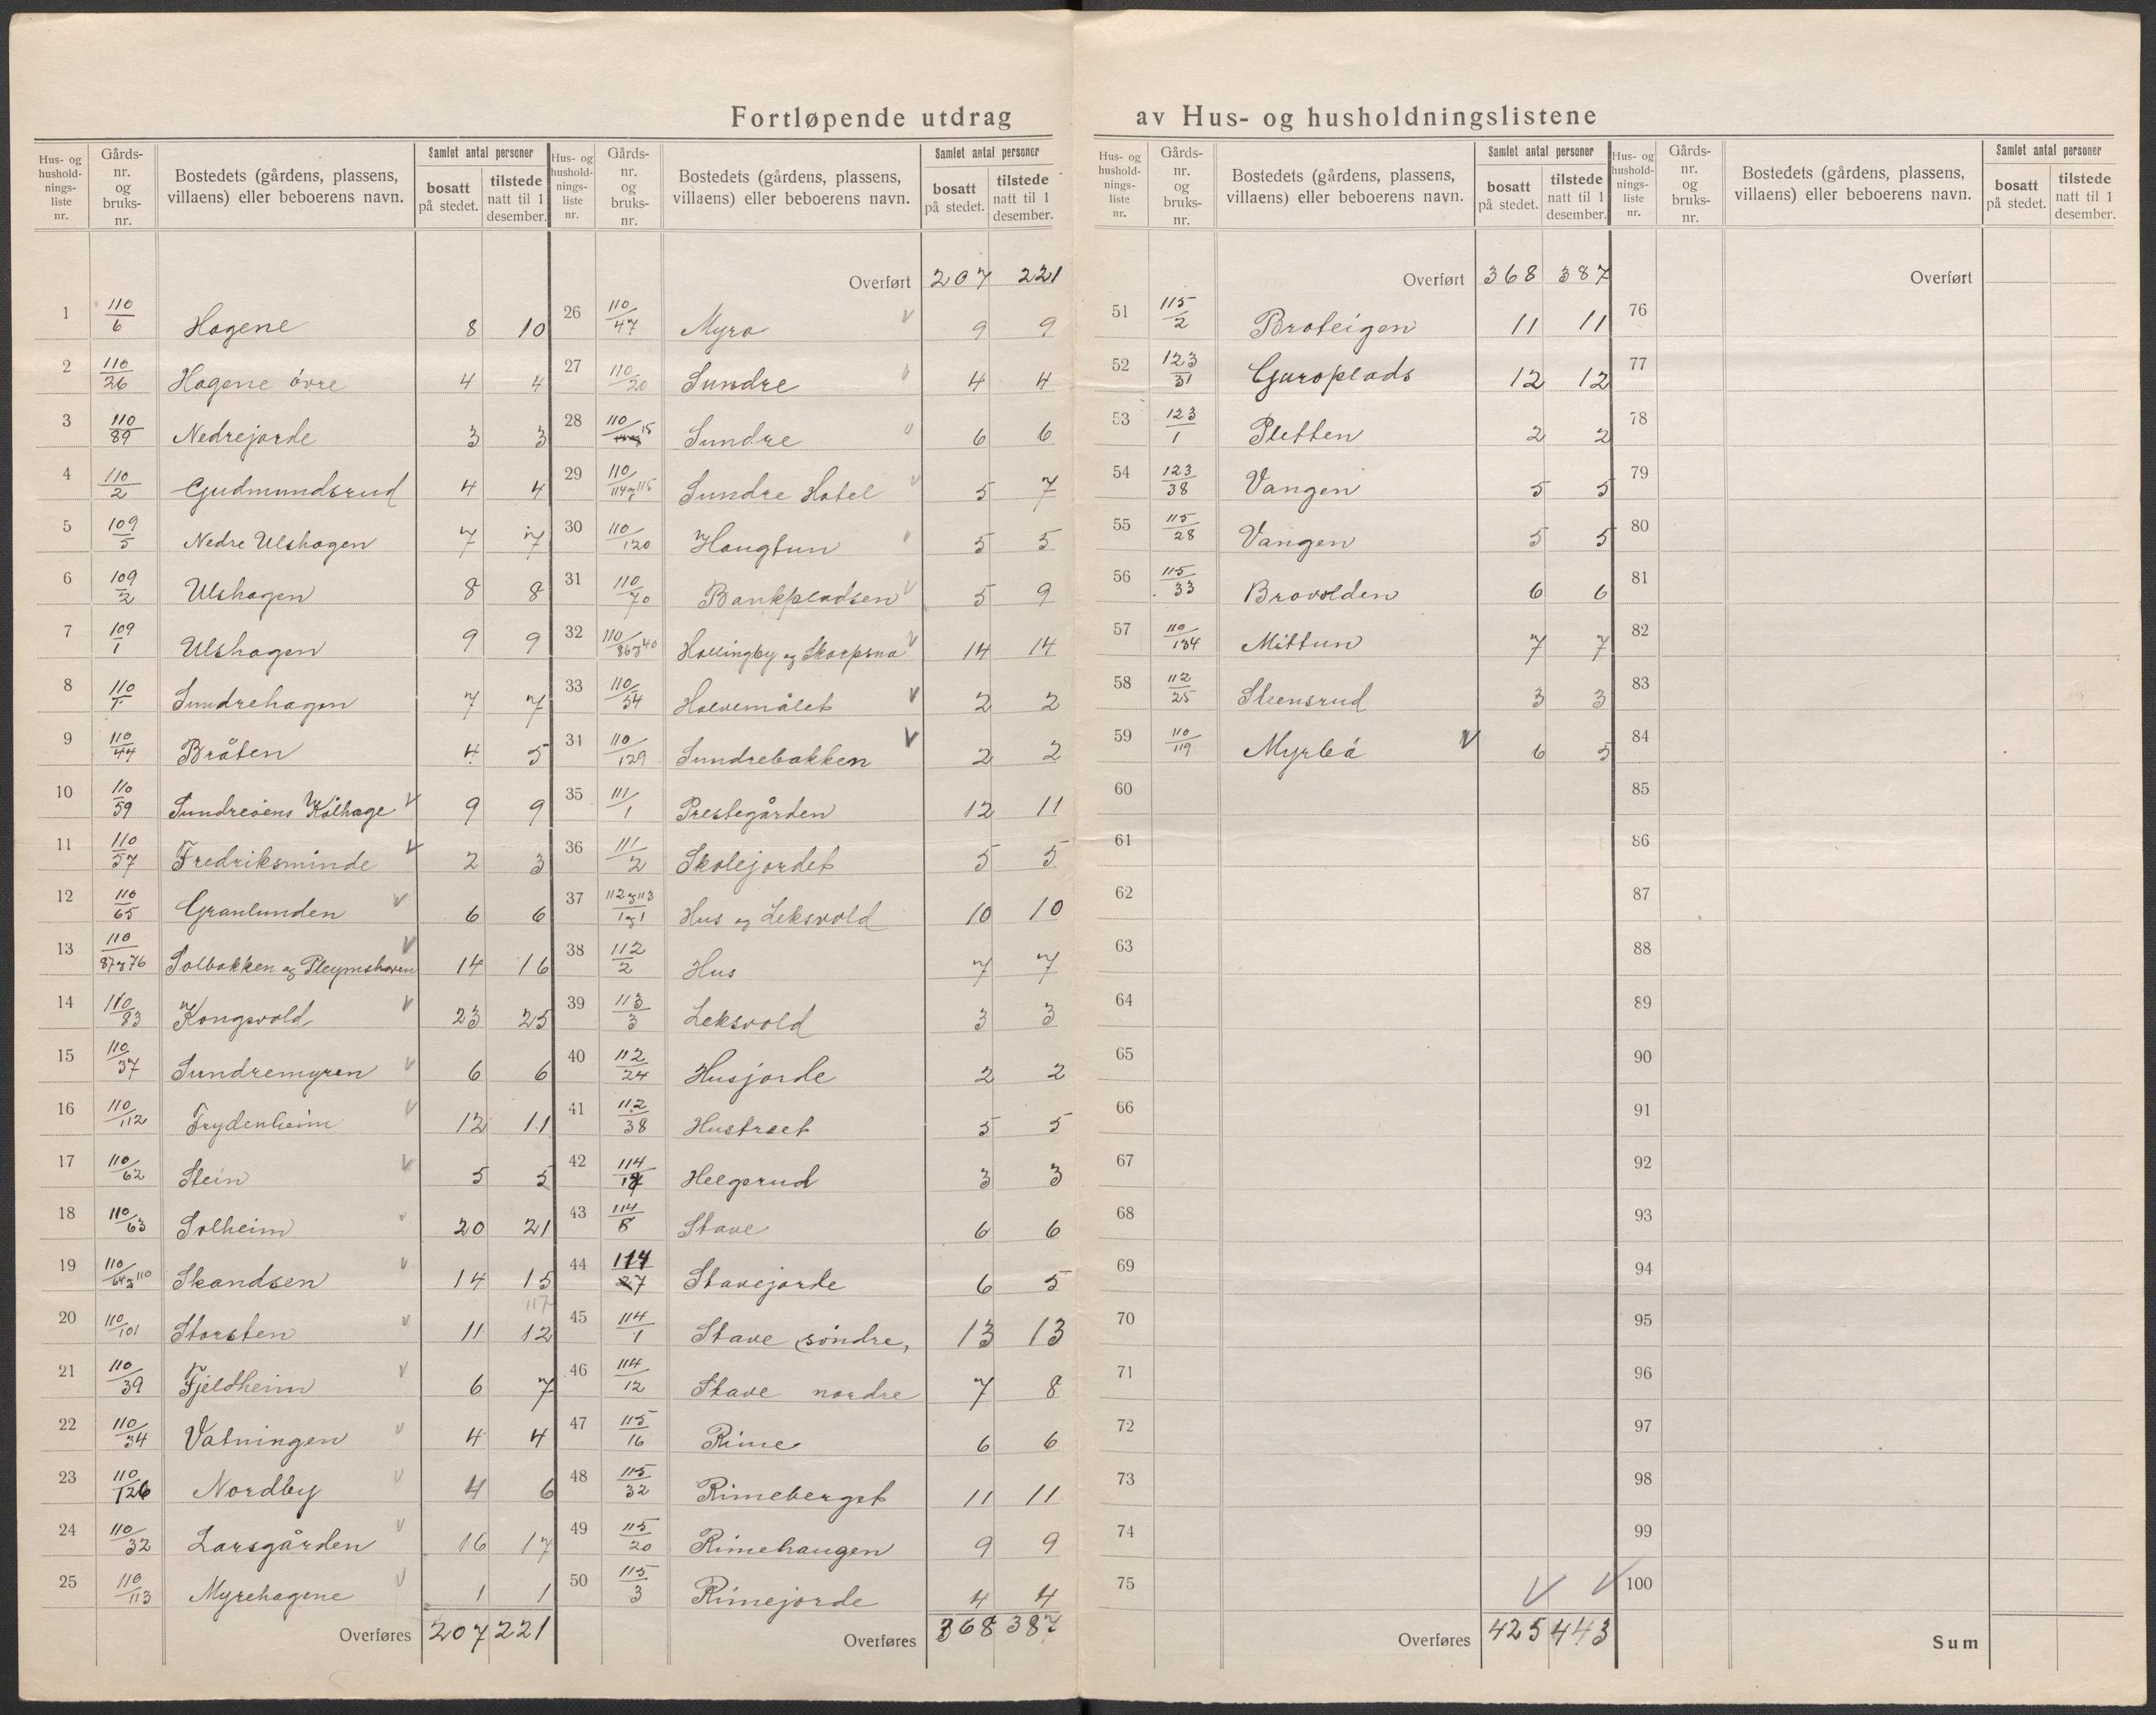 Fortløpende utdrag av Hus- og husholdningslistene
Hus- og husholdnings-liste nr. | Gårds-nr. og bruks-nr. | Bostedets (gårdens, plassens, villaens) eller beboerens navn. | Samlet antal personer: bosatt på stedet. | tilstede natt til 1 desember.
1 110/6 Hagene 8 10
2 110/26 Hagene övre 4 4
3 110/89 Nedrejorde 3 3
4 110/2 Gudmundsrud 4 4
5 109/5 Nedre Ulshagen 7 7
6 109/2 Ulshagen 8 8
7 109/1 Ulshagen 9 9
8 110/1 Sundrehagen 7 7
9 110/44 Bråten 4 5
10 110/59 Sundreöens Kålhage V 9 9
11 110/57 Fredriksminde V 2 3
12 110/65 Granlunden V 6 6
13 110/87og76 Solbakken og Pleymshaven V 14 16
14 110/83 Kongsvold V 23 25
15 110/37 Sundremyren V 6 6
16 110/112 Frydenheim V 12 11
17 110/62 Stein V 5 5
18 110/63 Solheim V 20 21
19 110/64og110 Skandsen V 14 15
117
20 110/101 Storsten V 11 12
21 110/39 Fjeldheim V 6 7
22 110/34 Vatningen V 4 4
23 110/126 Nordby V 4 6
24 110/32 Larsgården V 16 17
25 110/113 Myrehagene V 1 1
Overføres 207 221
Hus- og husholdnings-liste nr. | Gårds-nr. og bruks-nr. | Bostedets (gårdens, plassens, villaens) eller beboerens navn. | Samlet antal personer: bosatt på stedet. | tilstede natt til 1 desember.
Overført 207 221
26 110/47 Myra V 9 9
27 110/20 Sundre V 4 4
28 110/15 Sundre V 6 6
29 110/114og115 Sundre Hotel V 5 7
30 110/120 Haugtun V 5 5
31 110/70 Bankpladsen V 5 9
32 110/86og40 Hallingby og Skarpsno V 14 14
33 110/54 Halvemålet V 2 2
34 110/129 Sundrebakken V 2 2
35 111/1 Prestegården 12 11
36 111/2 Skolejordet 5 5
37 112og113/1og1 Hus og Leksvold 10 10
38 112/2 Hus 7 7
39 113/3 Leksvold 3 3
40 112/24 Husjorde 2 2
41 112/38 Hustraet 5 5
42 114 Helgerud 3 3
43 114/8 Stave 6 6
44 114/27 Stavejorde 6 5
45 114/1 Stave söndre, 13 13
46 114/12 Stave nordre 7 8
47 115/16 Rime 6 6
48 115/32 Rimeberget 11 11
49 115/20 Rimehaugen 9 9
50 115/3 Rimejorde 4 4
Overføres 368 387
Hus- og husholdnings-liste nr. | Gårds-nr. og bruks-nr. | Bostedets (gårdens, plassens, villaens) eller beboerens navn. | Samlet antal personer: bosatt på stedet. | tilstede natt til 1 desember.
Overført 368 387
51 115/2 Broteigen 11 11
52 123/31 Guroplads 12 12
53 123/1 Pletten 2 2
54 123/38 Vangen 5 5
55 115/28 Vangen 5 5
56 115/33 Brovolden 6 6
57 110/134 Mittun 7 7
58 112/25 Steensrud 3 3
59 110/119 Myrbö V 6 5
60
61
62
63
64
65
66
67
68
69
70
71
72
73
74
75 V V
Overføres 425 443
Hus- og husholdnings-liste nr. | Gårds-nr. og bruks-nr. | Bostedets (gårdens, plassens, villaens) eller beboerens navn. | Samlet antal personer: bosatt på stedet. | tilstede natt til 1 desember.
Overført
76
77
78
79
80
81
82
83
84
85
86
87
88
89
90
91
92
93
94
95
96
97
98
99
100
Sum